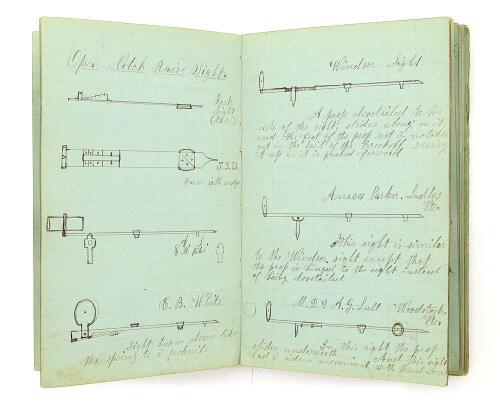 Open Notch Raise Sight.
Sight
T.S.D.
Raise with wedge
E. B. White
Sight turns down like
the spring to a
Windsor Sight
A prop dovetailed to the
side of the sight, slides along on it,
and the foot of the prop rest in notches
cut in the part of the Breechoff raising
it up as it is pushed forward
Amasa Parker, Ludlow
Vt.
This sight is similar
to the Windsor sight except that
the prop is hinged to the sight instead
of being dovetailed
M. D. & A. J. Lull Woodstock,
Vt.
In this sight the prop
slides underneath And this sight
has a sidem movement with thumb